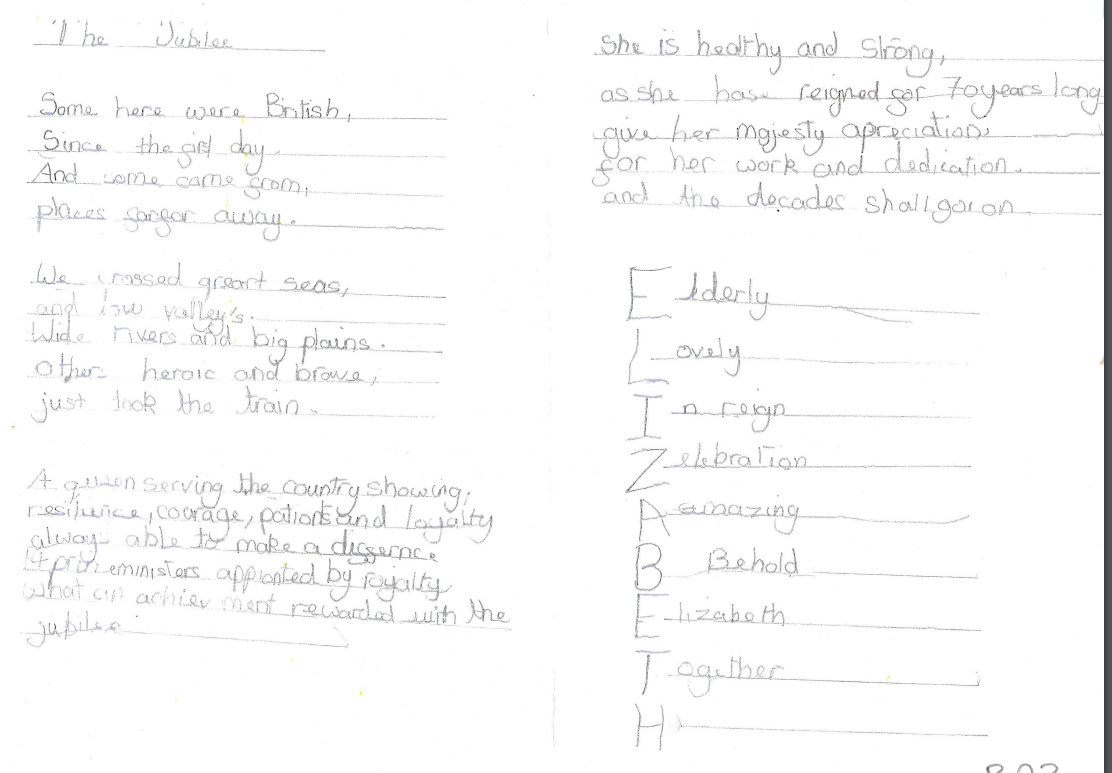 The Jubilee
Some here were British,
Since the girl day.
And some came from,
places fargar away.
We crossed greart seas,
and low valley's.
Wide rivers and big plains.
Other heroic and brave,
just took the train.
A queen serving the country showing,
resilience, courage, pationts and loyalty
alway able to make a difference
14 primeministers appionted by royalty
What an achievment rewarded with the
jubilee
She is healthy and strong,
as she hase reigned for 70 years long
give her majesty apreciation,
for her work and dedication.
and the decades shall go on.
Elderly
Lovely
In reign
Zelebration
Aamazing
B Behold
Elizabeth
Together
H